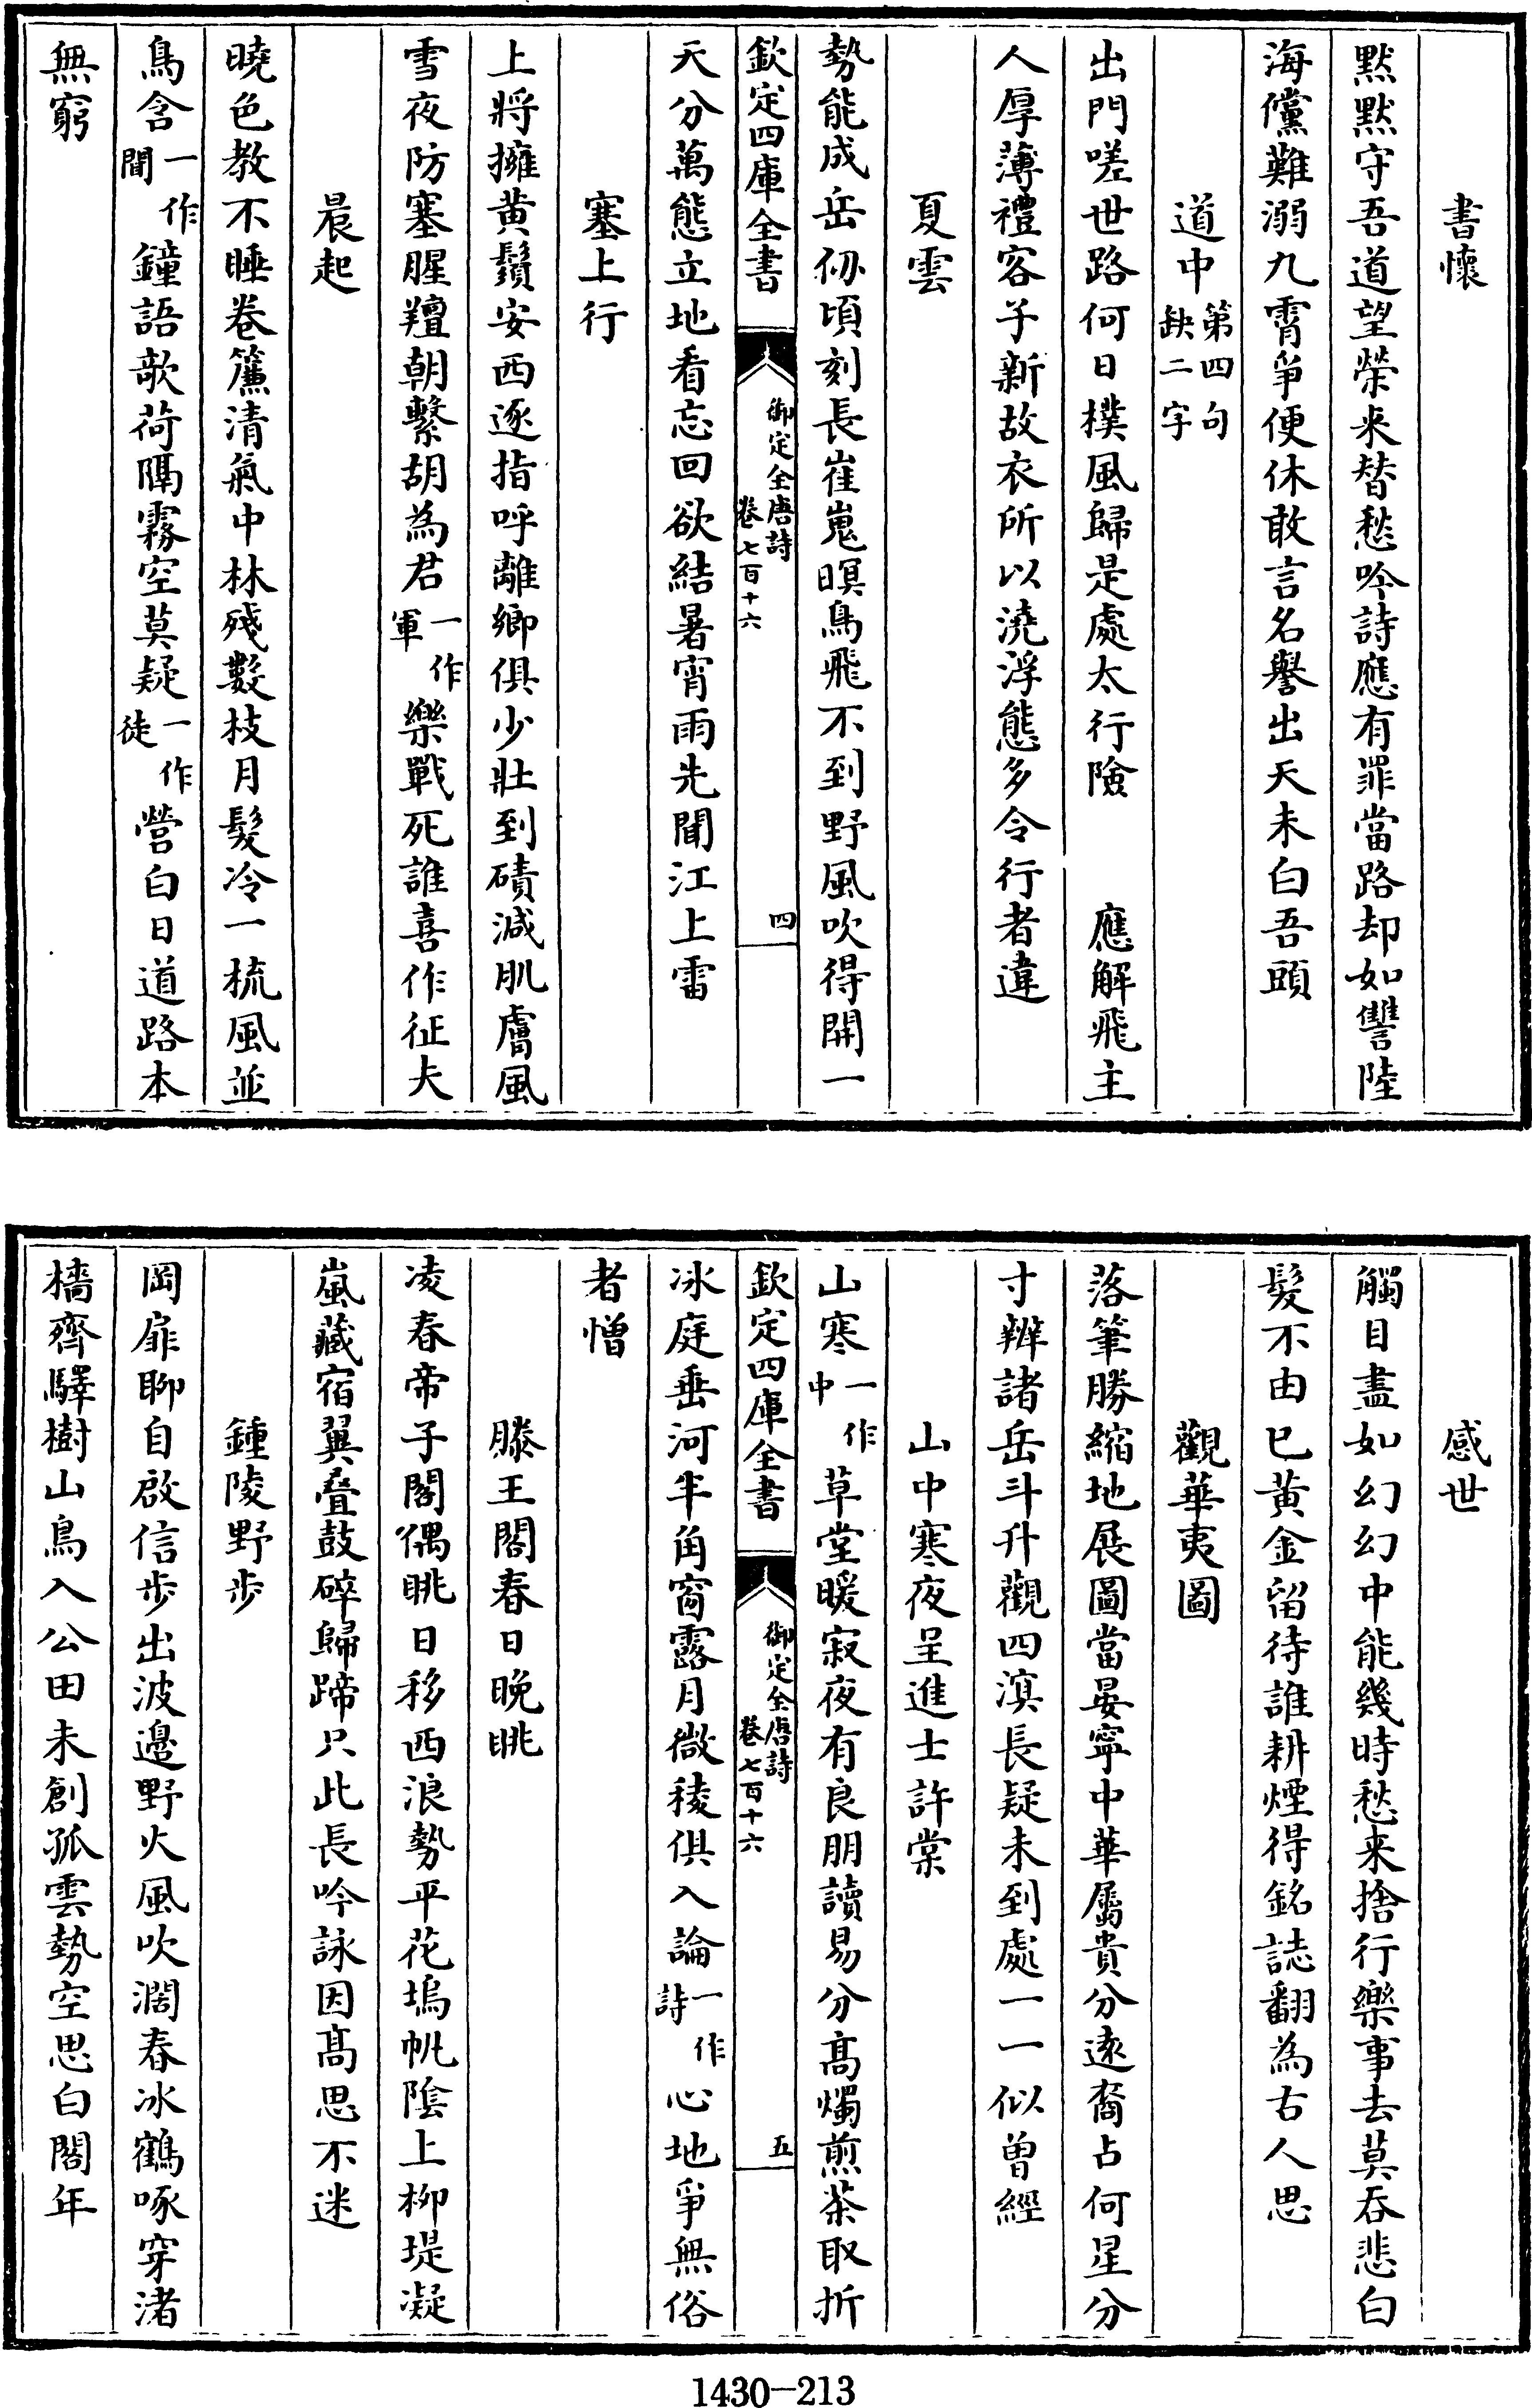 書懷
黙黙守吾道望榮来替愁吟詩應有罪當路却如讐陸
海儻難溺九霄爭便休敢言名譽出天未白吾頭
道中第四句缺二字
出門嗟世路何日樸風歸是處太行險　　應解飛主
人厚薄禮客子新故衣所以澆浮態多令行者違
夏雲
勢能成岳仞頃刻長崔嵬暝鳥飛不到野風吹得開一
欽定四庫全書　御定全唐詩卷七百十六　四
天分萬態立地看忘回欲結暑宵雨先聞江上雷
塞上行
上將擁黄鬚安西逐指呼離鄉俱少壯到磧減肌膚風
雪夜防塞腥羶朝繫胡為君一作軍樂戰死誰喜作征夫
晨起
曉色教不睡卷簾清氣中林殘數枝月髮冷一梳風並
鳥含一作聞鐘語欹荷隔霧空莫疑一作徒營白日道路本
無窮
感世
觸目盡如幻幻中能幾時愁来捨行樂事去莫吞悲白
髮不由已黄金留待誰耕煙得銘誌翻為古人思
觀華夷圖
落筆勝縮地展圖當晏寧中華屬貴分遠裔占何星分
寸辨諸岳斗升觀四溟長疑未到處一一似曾經
山中寒夜呈進士許棠
山寒一作中草堂暖寂夜有良朋讀易分髙燭煎茶取折
欽定四庫全書　御定全唐詩卷七百十六　五
冰庭垂河半角窗露月微稜俱入論一作詩心地爭無俗
者憎
滕王閣春日晚眺
凌春帝子閣偶眺日移西浪勢平花塢帆陰上柳堤凝
嵐藏宿翼疊鼓碎歸蹄只此長吟詠因髙思不迷
鍾陵野步
岡扉聊自啟信步出波邊野火風吹濶春冰鶴啄穿渚
檣齊驛樹山鳥入公田未創孤雲勢空思白閣年
1430—213